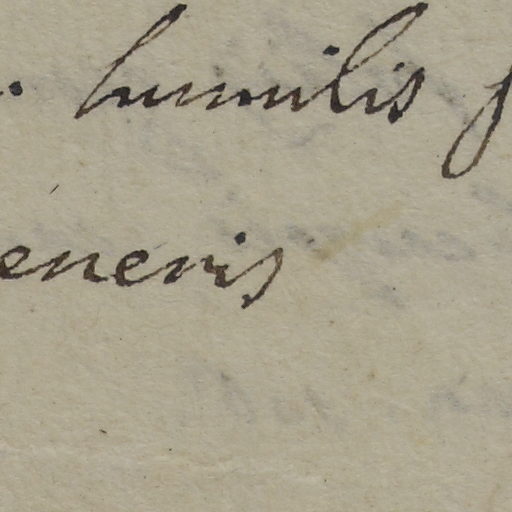 . humilis
eneris